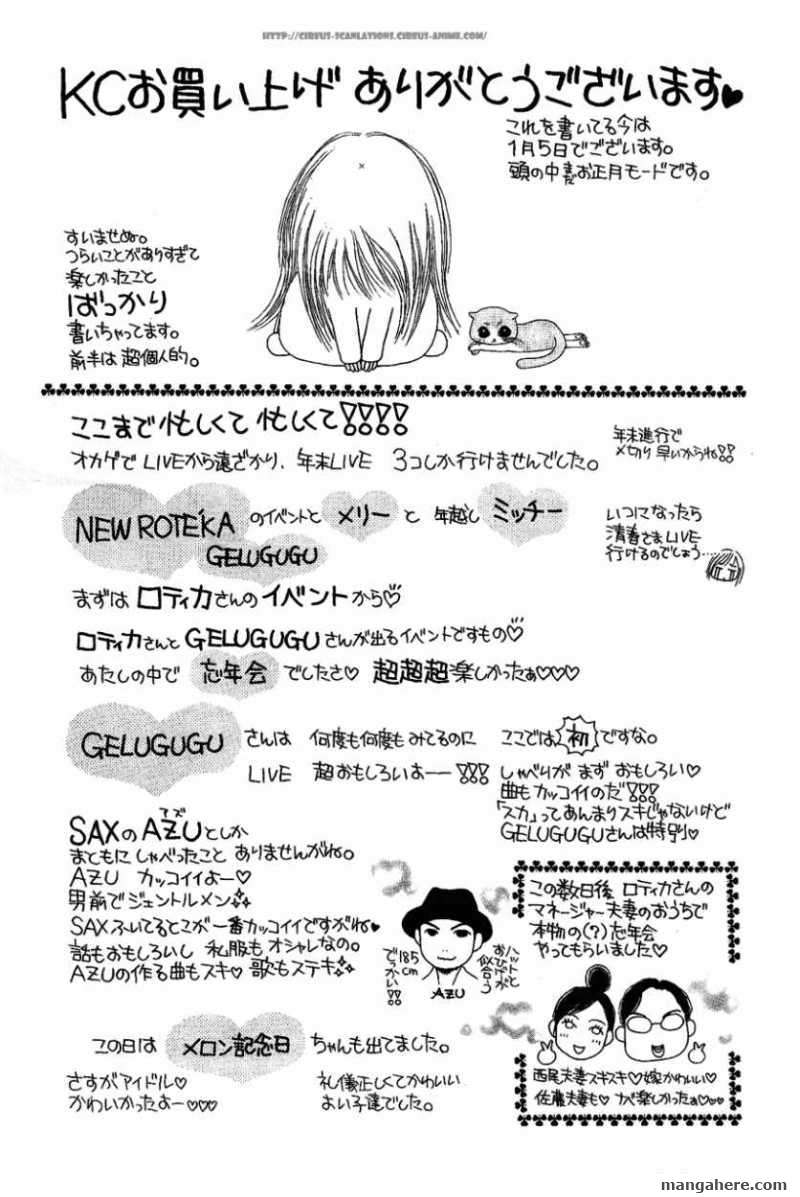 HTTP://CIRCUS-SCANLATIONS.CIRCUS-ANIME.COM/
KCお買い上げ ありがとうございます♥
これを書いてる今は
1月5日でございます。
頭の中まだお正月モードです。
すいませぬ。
つらいことがありすぎて
楽しかったこと
ばっかり
書いちゃってます。
前半は 超個人的。
ここまで忙しくて 忙しくて!!!!
オカゲで LIVEから遠ざかり、年末LIVE 3コしか行けませんでした。
年末進行で
〆切り 早いからね!!
NEW ROTE'KA のイベントと メリー と 年越し ミッチー
GELUGUGU
いつになったら
清春さまLIVE
行けるのでしょう……
まずは ロティカさんの イベント から♡
ロティカさんと GELUGUGUさんが出るイベントですもの♡
あたしの中で 忘年会 でしたさ♡ 超超超楽しかったぁ♡♡♡
GELUGUGU さんは 何度も何度も みてるのに ここでは 初 ですな。
LIVE 超おもしろいよーー!!!
しゃべりが まず おもしろい♡
曲も カッコイイのだ!!!
「スカ」って あんまりスキじゃないけど
GELUGUGUさんは特別♡
SAXの AZUとしか
アズ
まともに しゃべったこと ありませんがね。
AZU カッコイイよー♡
男前で ジェントルメン
SAXふいてるとこが 一番カッコイイですがね♥
話もおもしろいし 私服も オシャレなの。
AZUの作る曲もスキ♡ 歌もステキ
ハットと
おひげが
似合う
185cm
でっかい!!
AZU
この数日後 ロティカさんの
マネージャー夫妻のおうちで
本物の(?)忘年会
やってもらいました♡
西尾夫妻スキスキ♡嫁かわいい♡
佐藤夫妻も♡ ナベ楽しかったぁ♡♡♡
この日は メロン記念日 ちゃんも出てました。
さすがアイドル♡
かわいかったよー♡♡♡
礼儀正しくてかわいい
よい子達でした。
mangahere.com